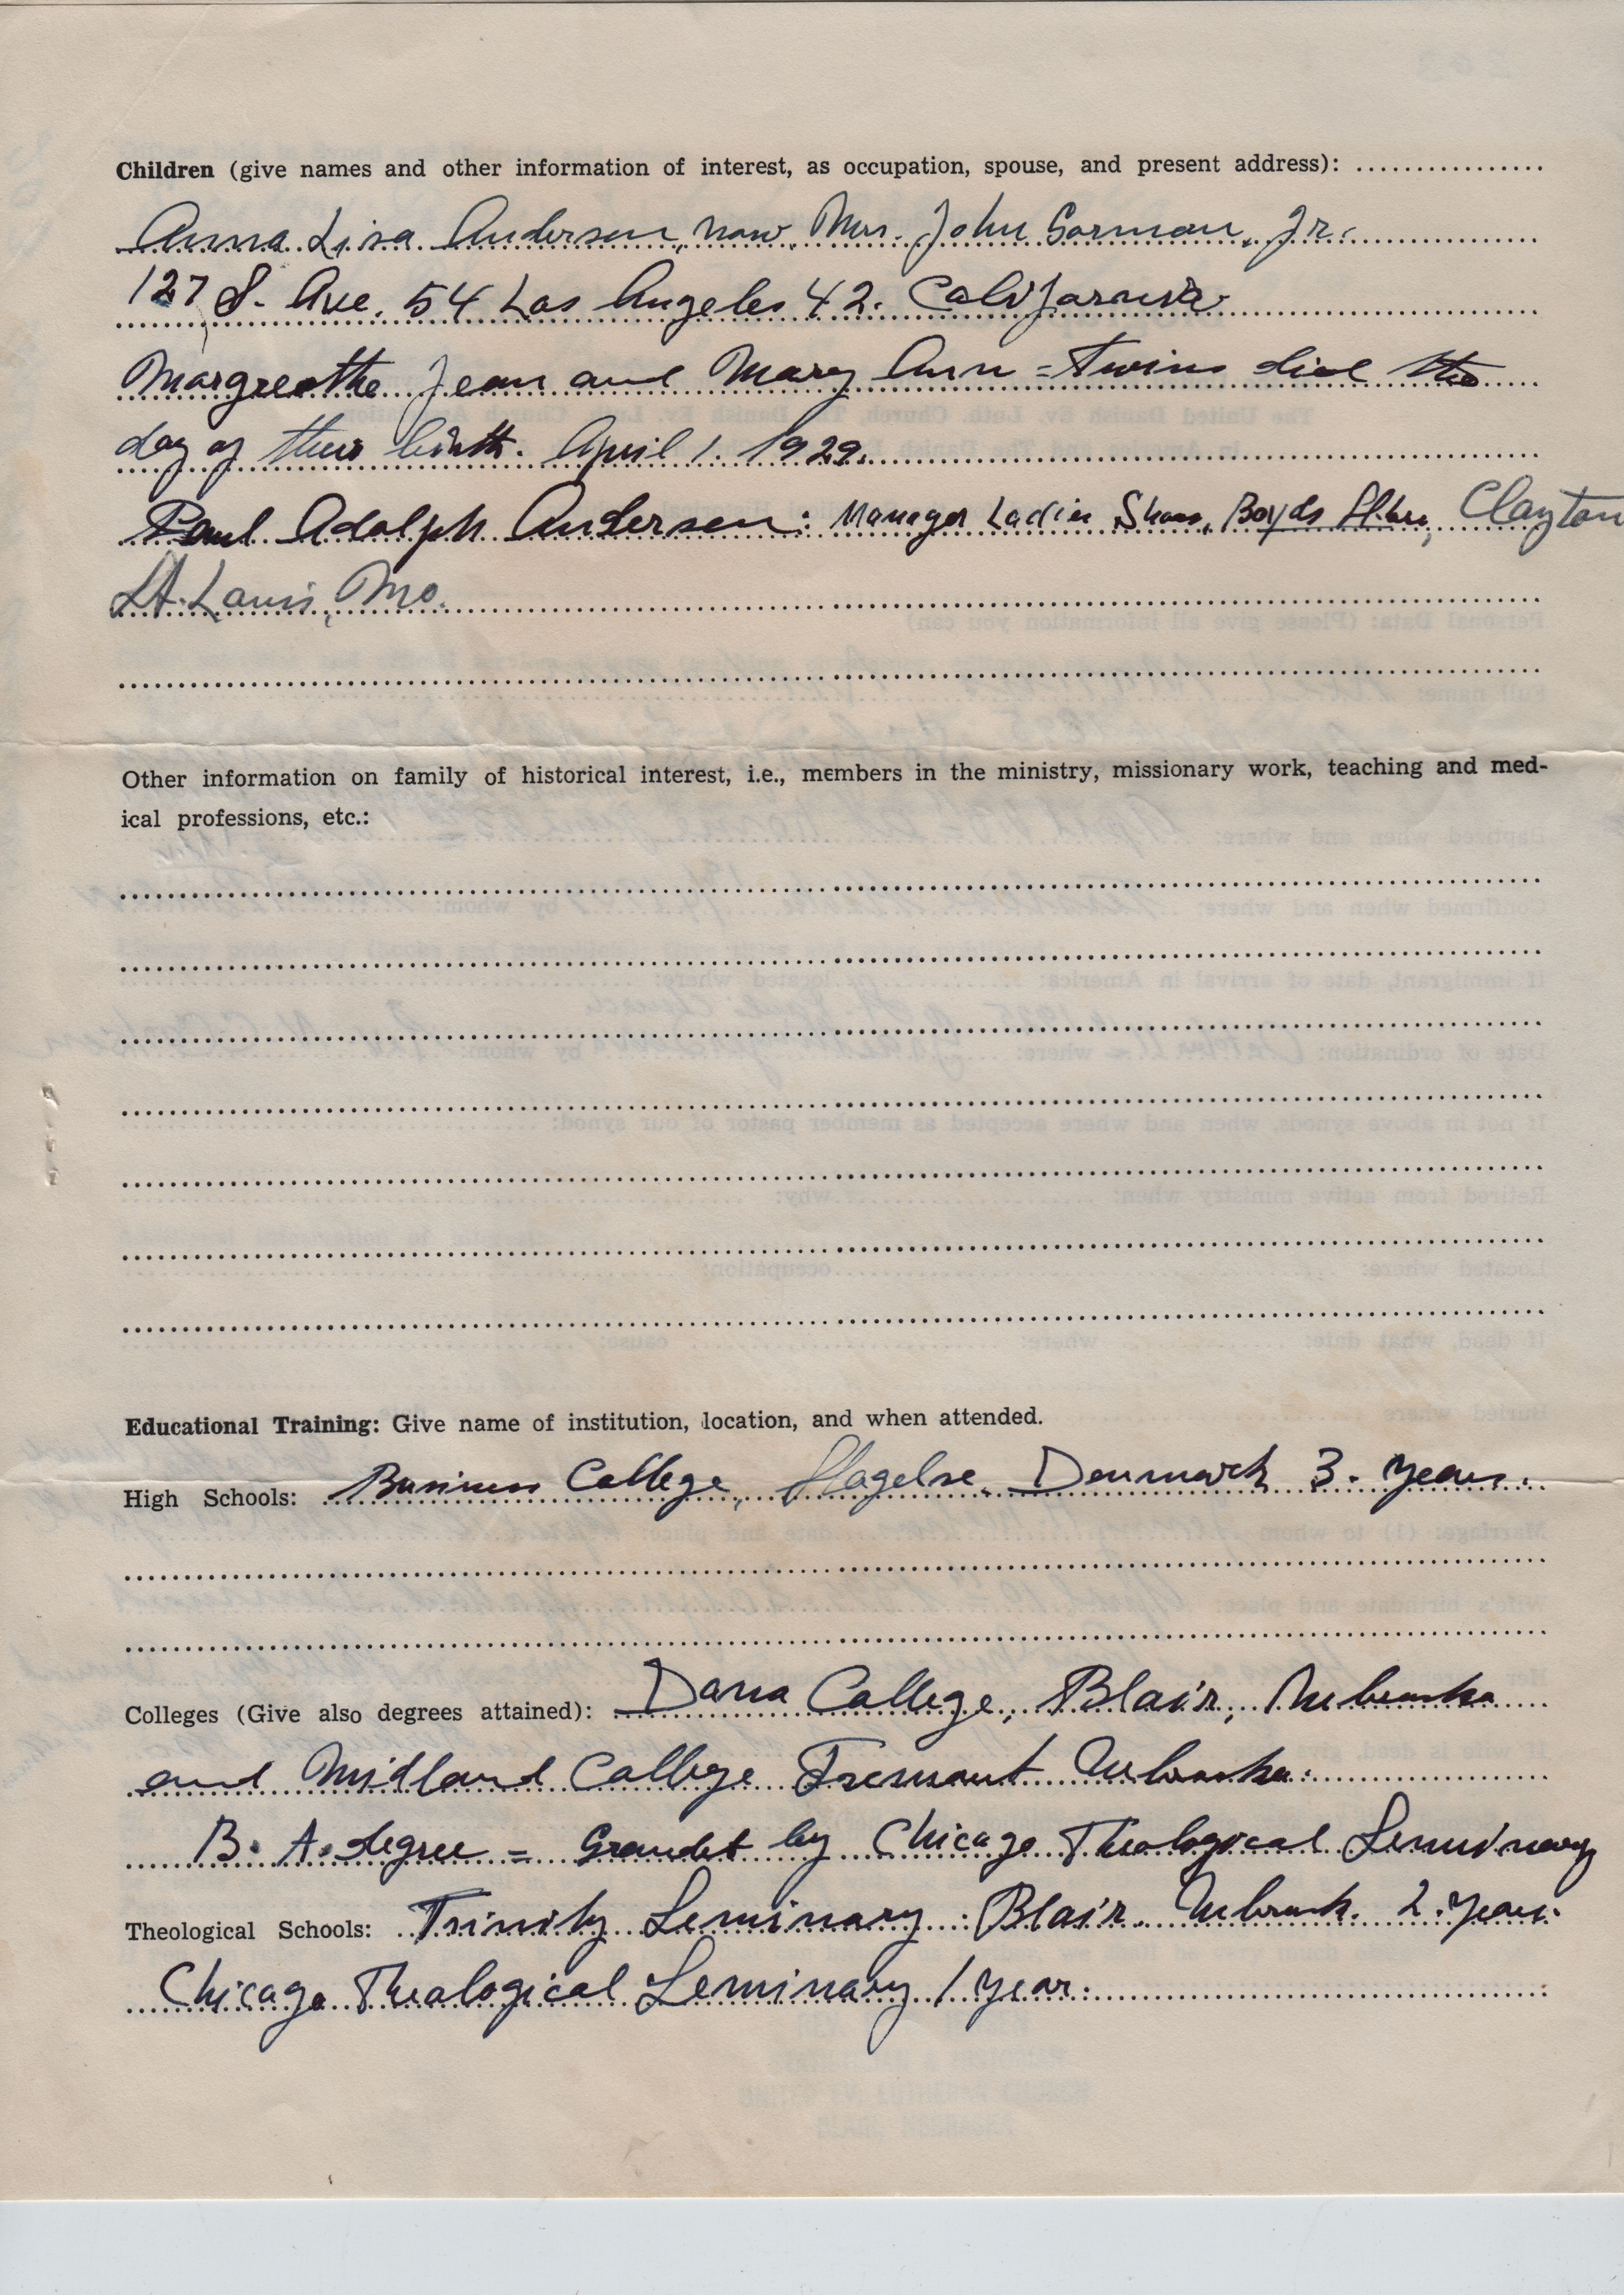 Children (give names and other information of interest, as occupation, spouse, and present address):
Anna Lisa Andersen, now Mrs. John Gorman, Jr.
127 S. Ave. 54 Los Angeles 42. California.
Margreathe Jean and Mary Ann = twins died the
day of their birth. April 1. 1929.
Paul Adolph Andersen: Manager Ladies Shoes, Boyds Store, Clayton
St. Louis, Mo.
Other information on family of historical interest, i.e., members in the ministry, missionary work, teaching and med-
ical professions, etc.:
Educational Training: Give name of institution, location, and when attended.
High Schools: Business College, Slagelse, Denmark 3. years.
Colleges (Give also degrees attained): Dana College, Blair, Nebraska
and Midland College Fremont Nebraska.
B. A. degree = Granted by Chicago Theological Seminary
Theological Schools: Trinity Seminary: Blair. Nebrask. 2. years.
Chicago Theological Seminary 1 year.